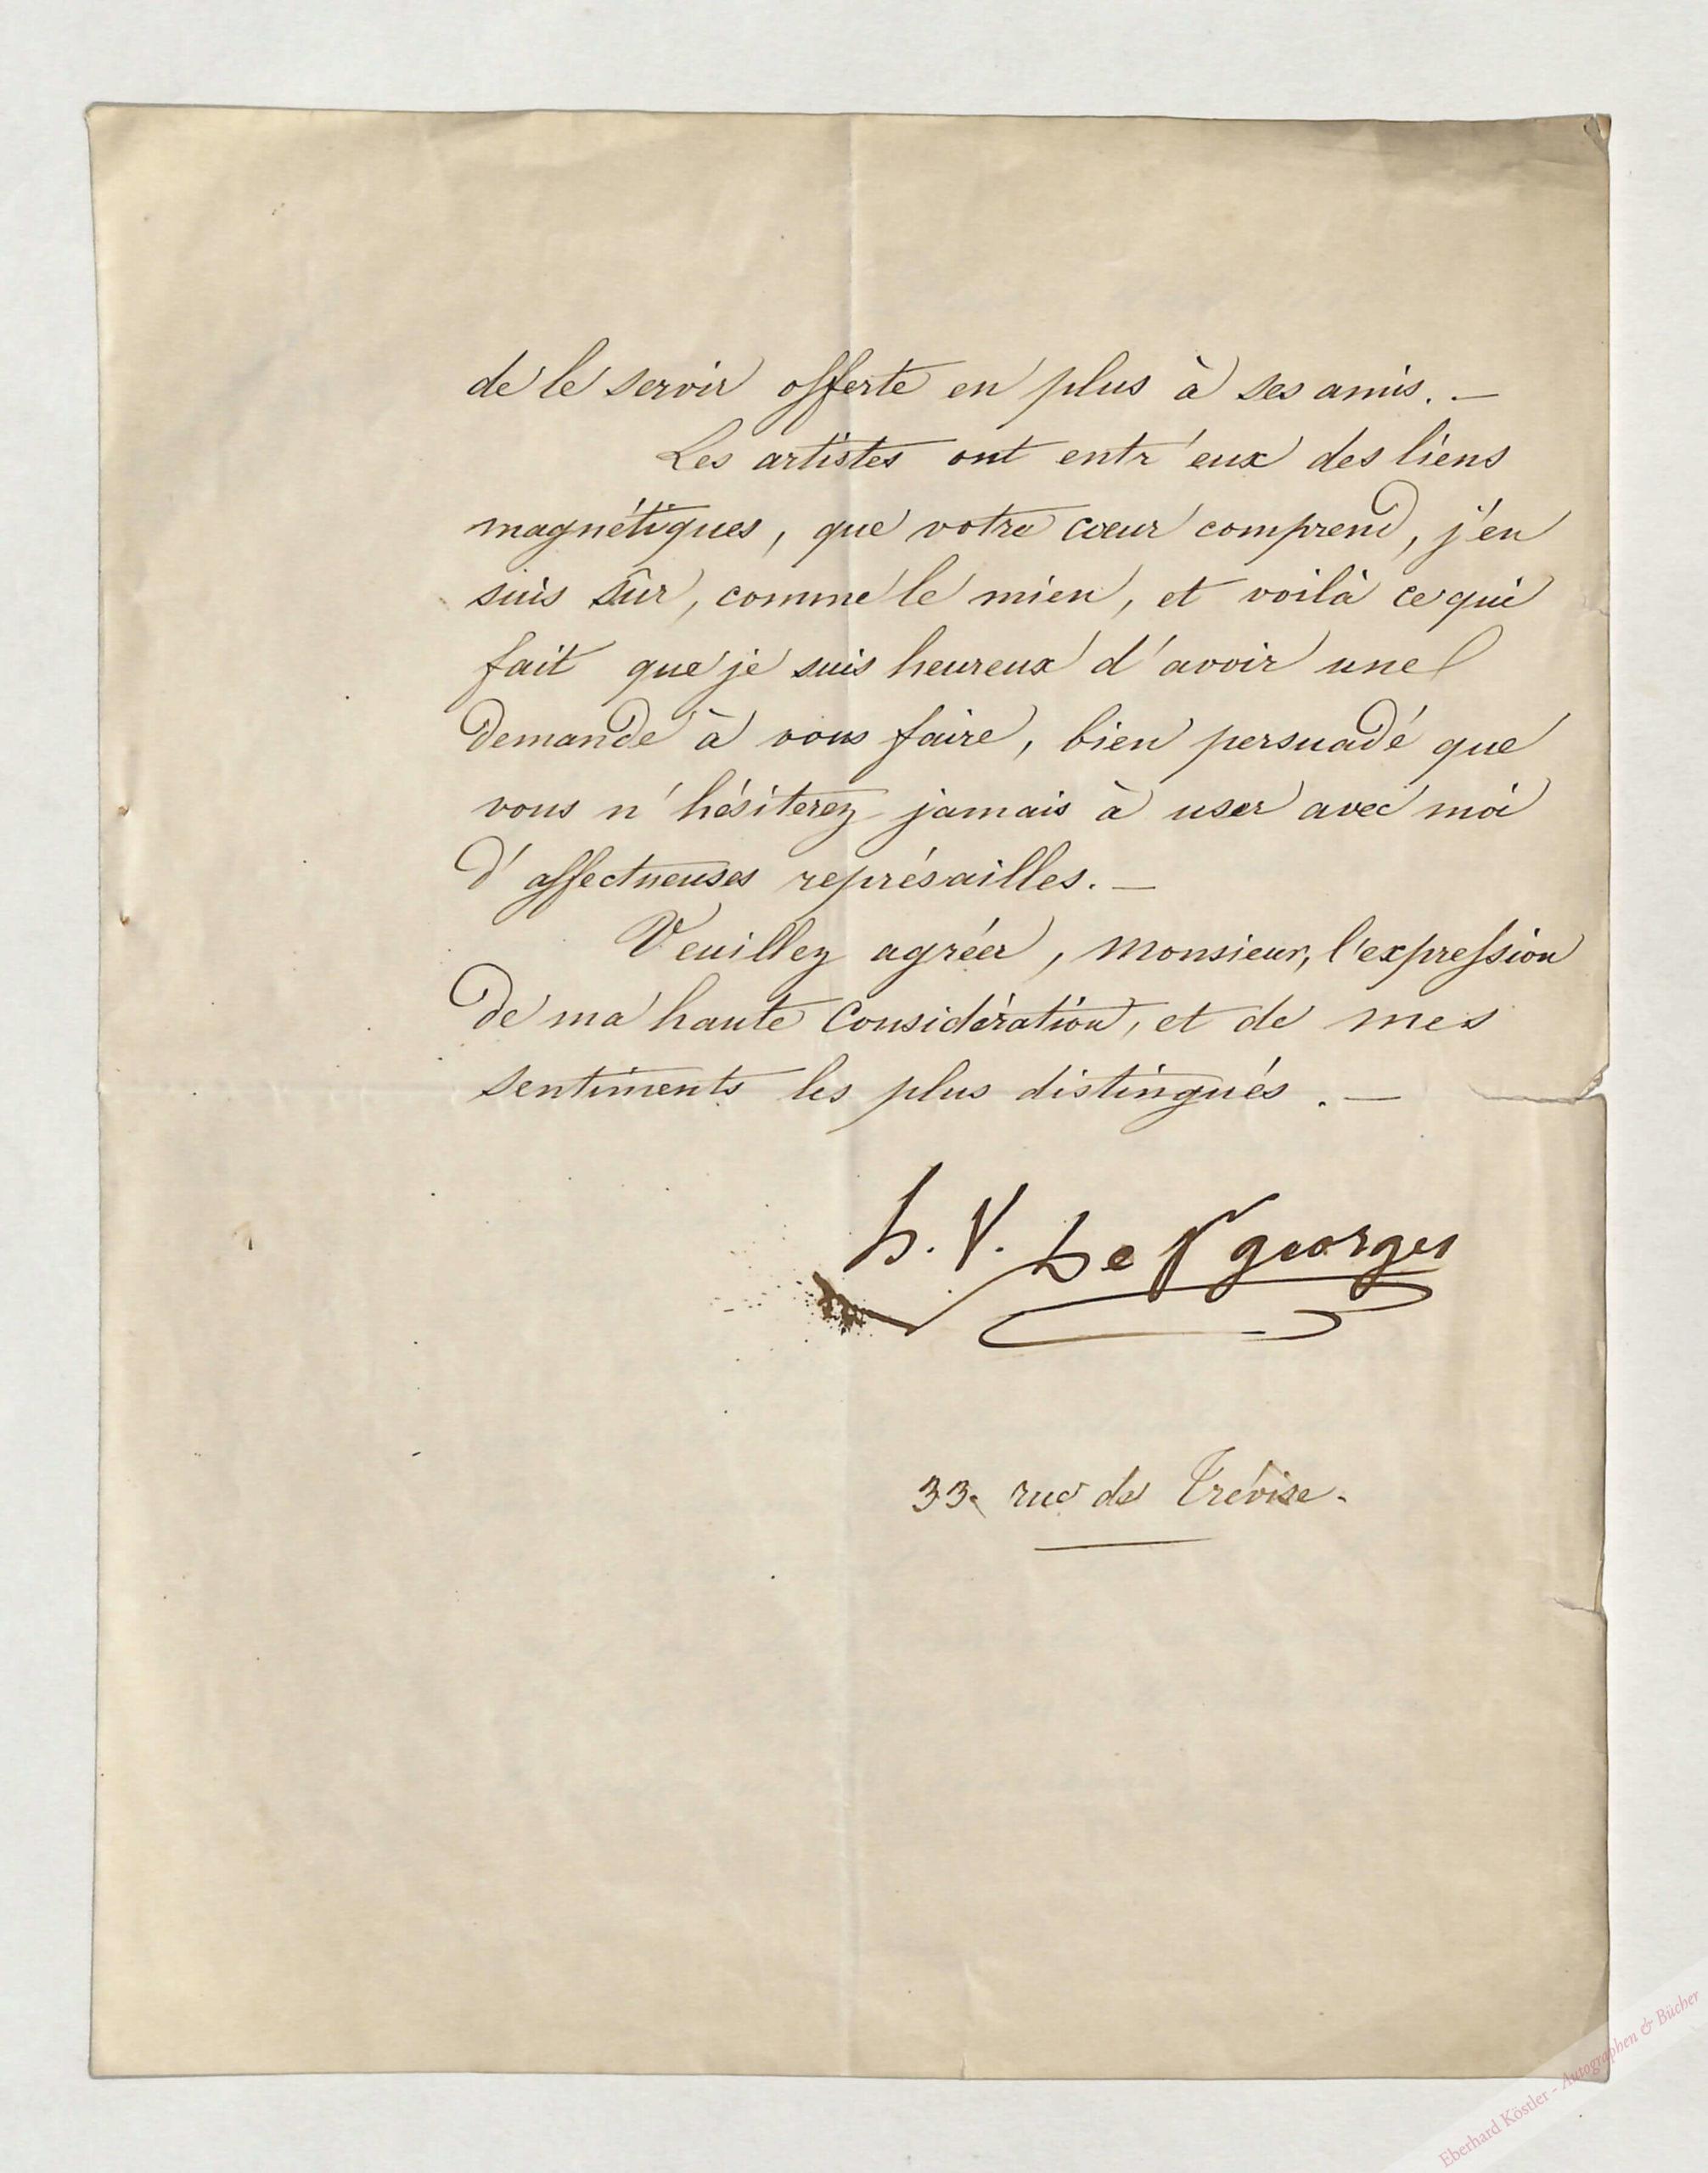 de le servir offerte en plus à ses amis. —
Les artistes ont entr'eux des liens
magnétiques, que votre cœur comprend, j'en
suis sûr, comme le mien, et voilà ce qui
fait que je suis heureux d'avoir une
demande à vous faire, bien persuadé que
vous n'hésiterez jamais à user avec moi
d'affectueuses représailles. —
Veuillez agréer, Monsieur, l'expression
de ma haute considération, et de mes
sentiments les plus distingués. —
h. V. de St georges
33. rue de Trévise.
Eberhard Köstler - Autographen & Bücher